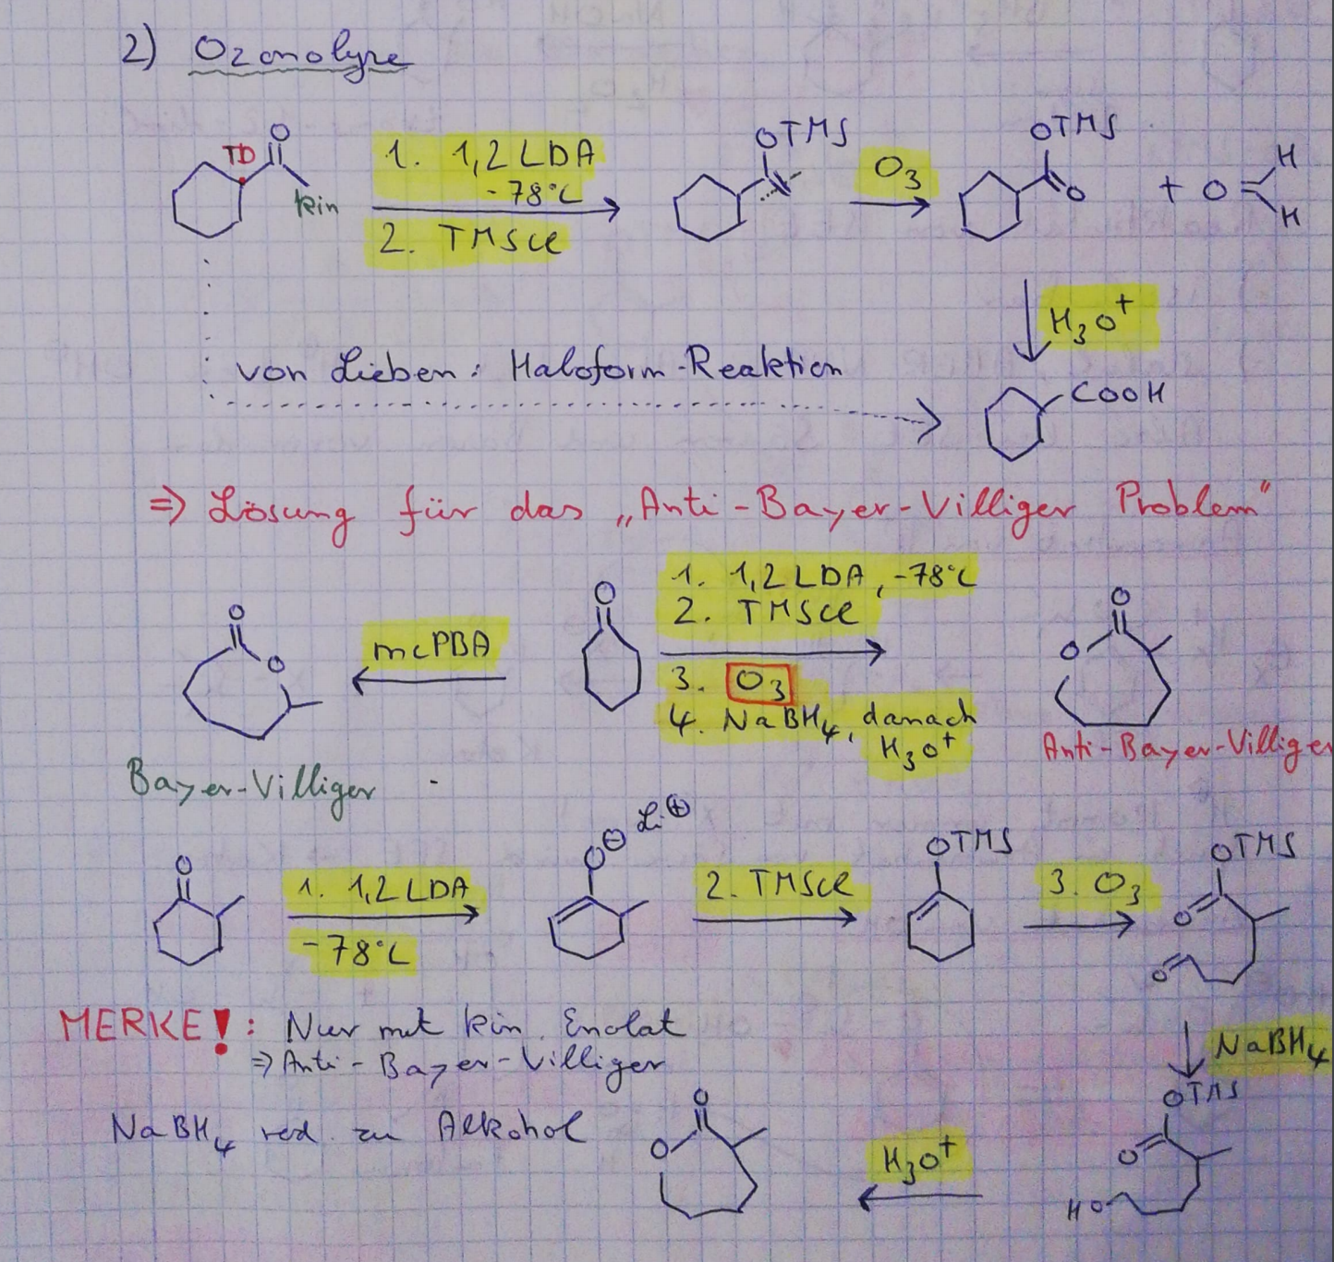 2) Ozonolyse
O
TD
kin
1. 1,2 LDA
-78°C
2. TMSCl
OTMS
O3
OTMS
O
+ O
H
H
H3O+
von Lieben: Haloform-Reaktion
COOH
⇒ Lösung für das „Anti-Bayer-Villiger Problem"
O
O
mcPBA
O
1. 1,2 LDA, -78°C
2. TMSCl
3. O3
4. NaBH4, danach
H3O+
O
O
Anti-Bayer-Villiger
Bayer-Villiger
O
1. 1,2 LDA
-78°C
O⊖ Li⊕
2. TMSCl
OTMS
3. O3
OTMS
O
O
MERKE!: Nur mit kin. Enolat
⇒ Anti-Bayer-Villiger
NaBH4
NaBH4 red. zu Alkohol
O
O
H3O+
OTMS
O
HO